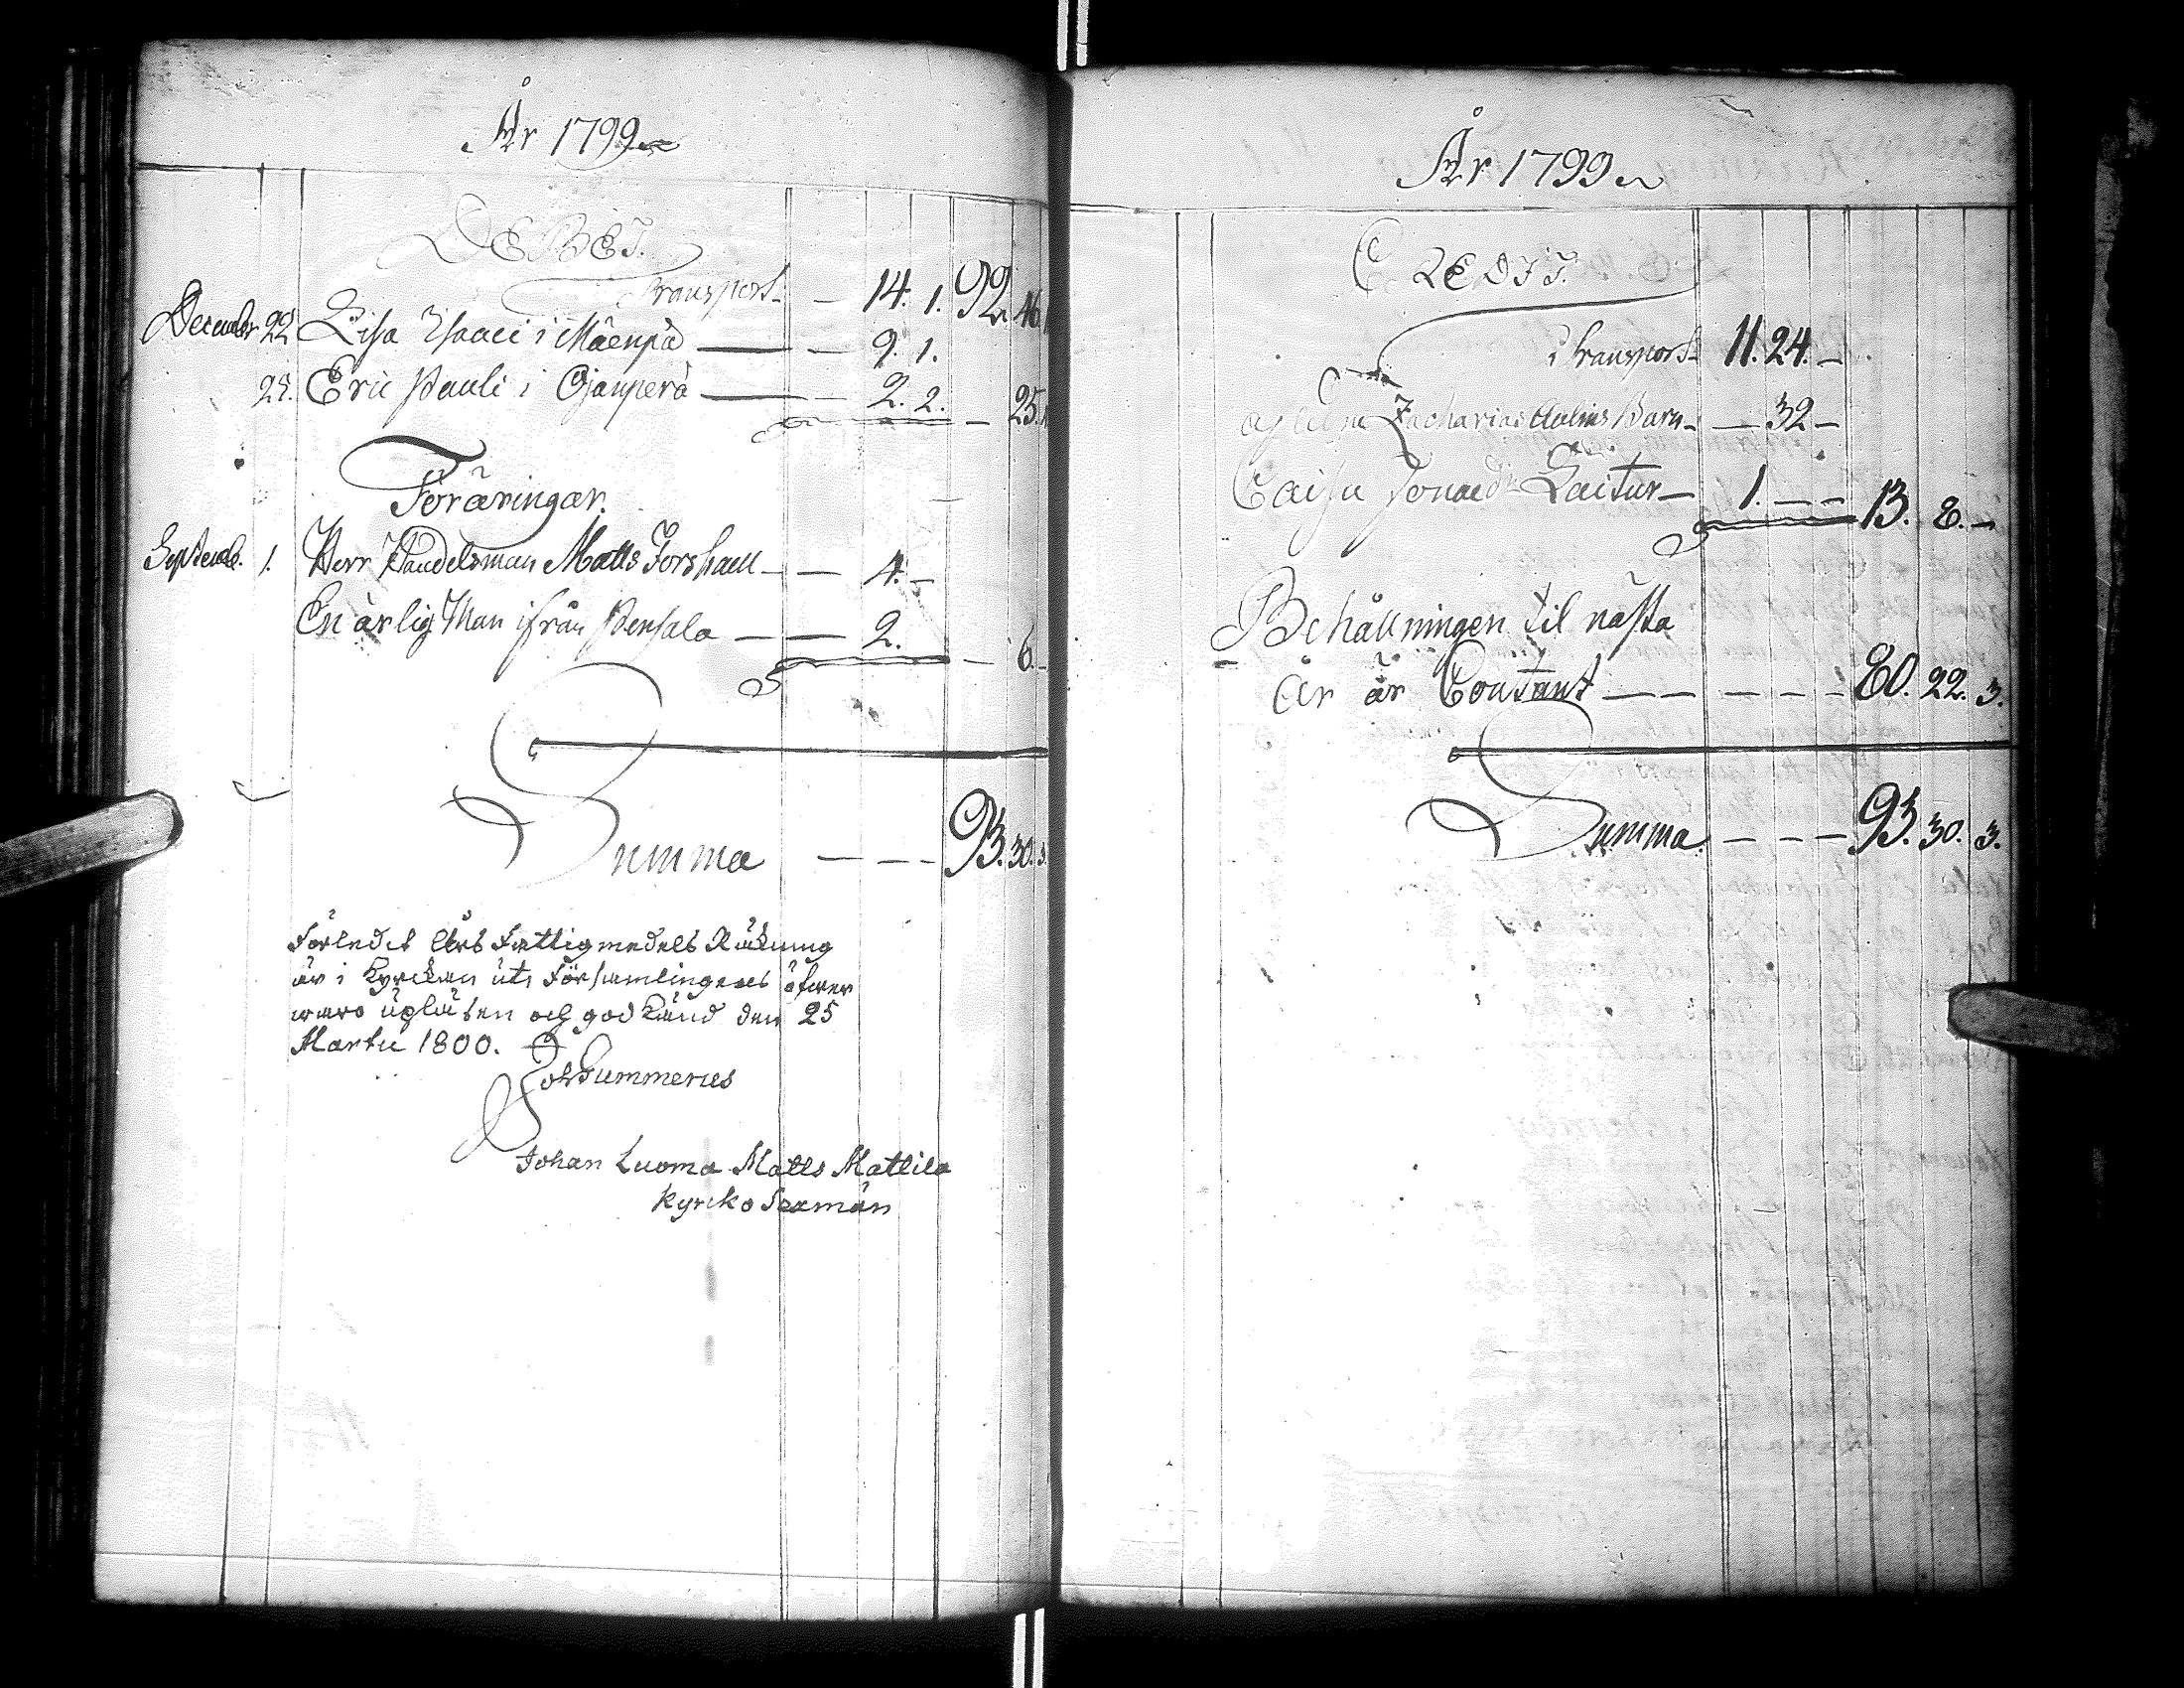 År 1799
DEBET.
Transport — 14. 1. 92. 46.
December 22 Lisa Isaaci i Mäenpä — 9. 1.
25. Eric Pauli i Ojanperä — 2. 2. — 25.
Föräringar.
Septemb. 1. Herr Handelsman Matts Forshaell — 4. —
En ärlig Man ifrån Pensala — 2. — 6. —
Summa — — — 93. 30. 3.
Förledit Års Fattigmedels Räkning
är i Kyrckan uti Församlingenes öfwer
waro upläsen och godkänd den 25
Martii 1800.
Joh Gummerus
Johan Luoma Matts Mattila
Kyrcko Sexmän
År 1799
CREDIT.
Transport 11. 24. —
Zacharias Aulins Barn — — 32 —
Caisa Jonaed: Laitur — 1. — — 13. 8. —
Behållningen til nästa
År är Contant — — — — — 80. 22. 3.
Summa — — — 93. 30. 3.